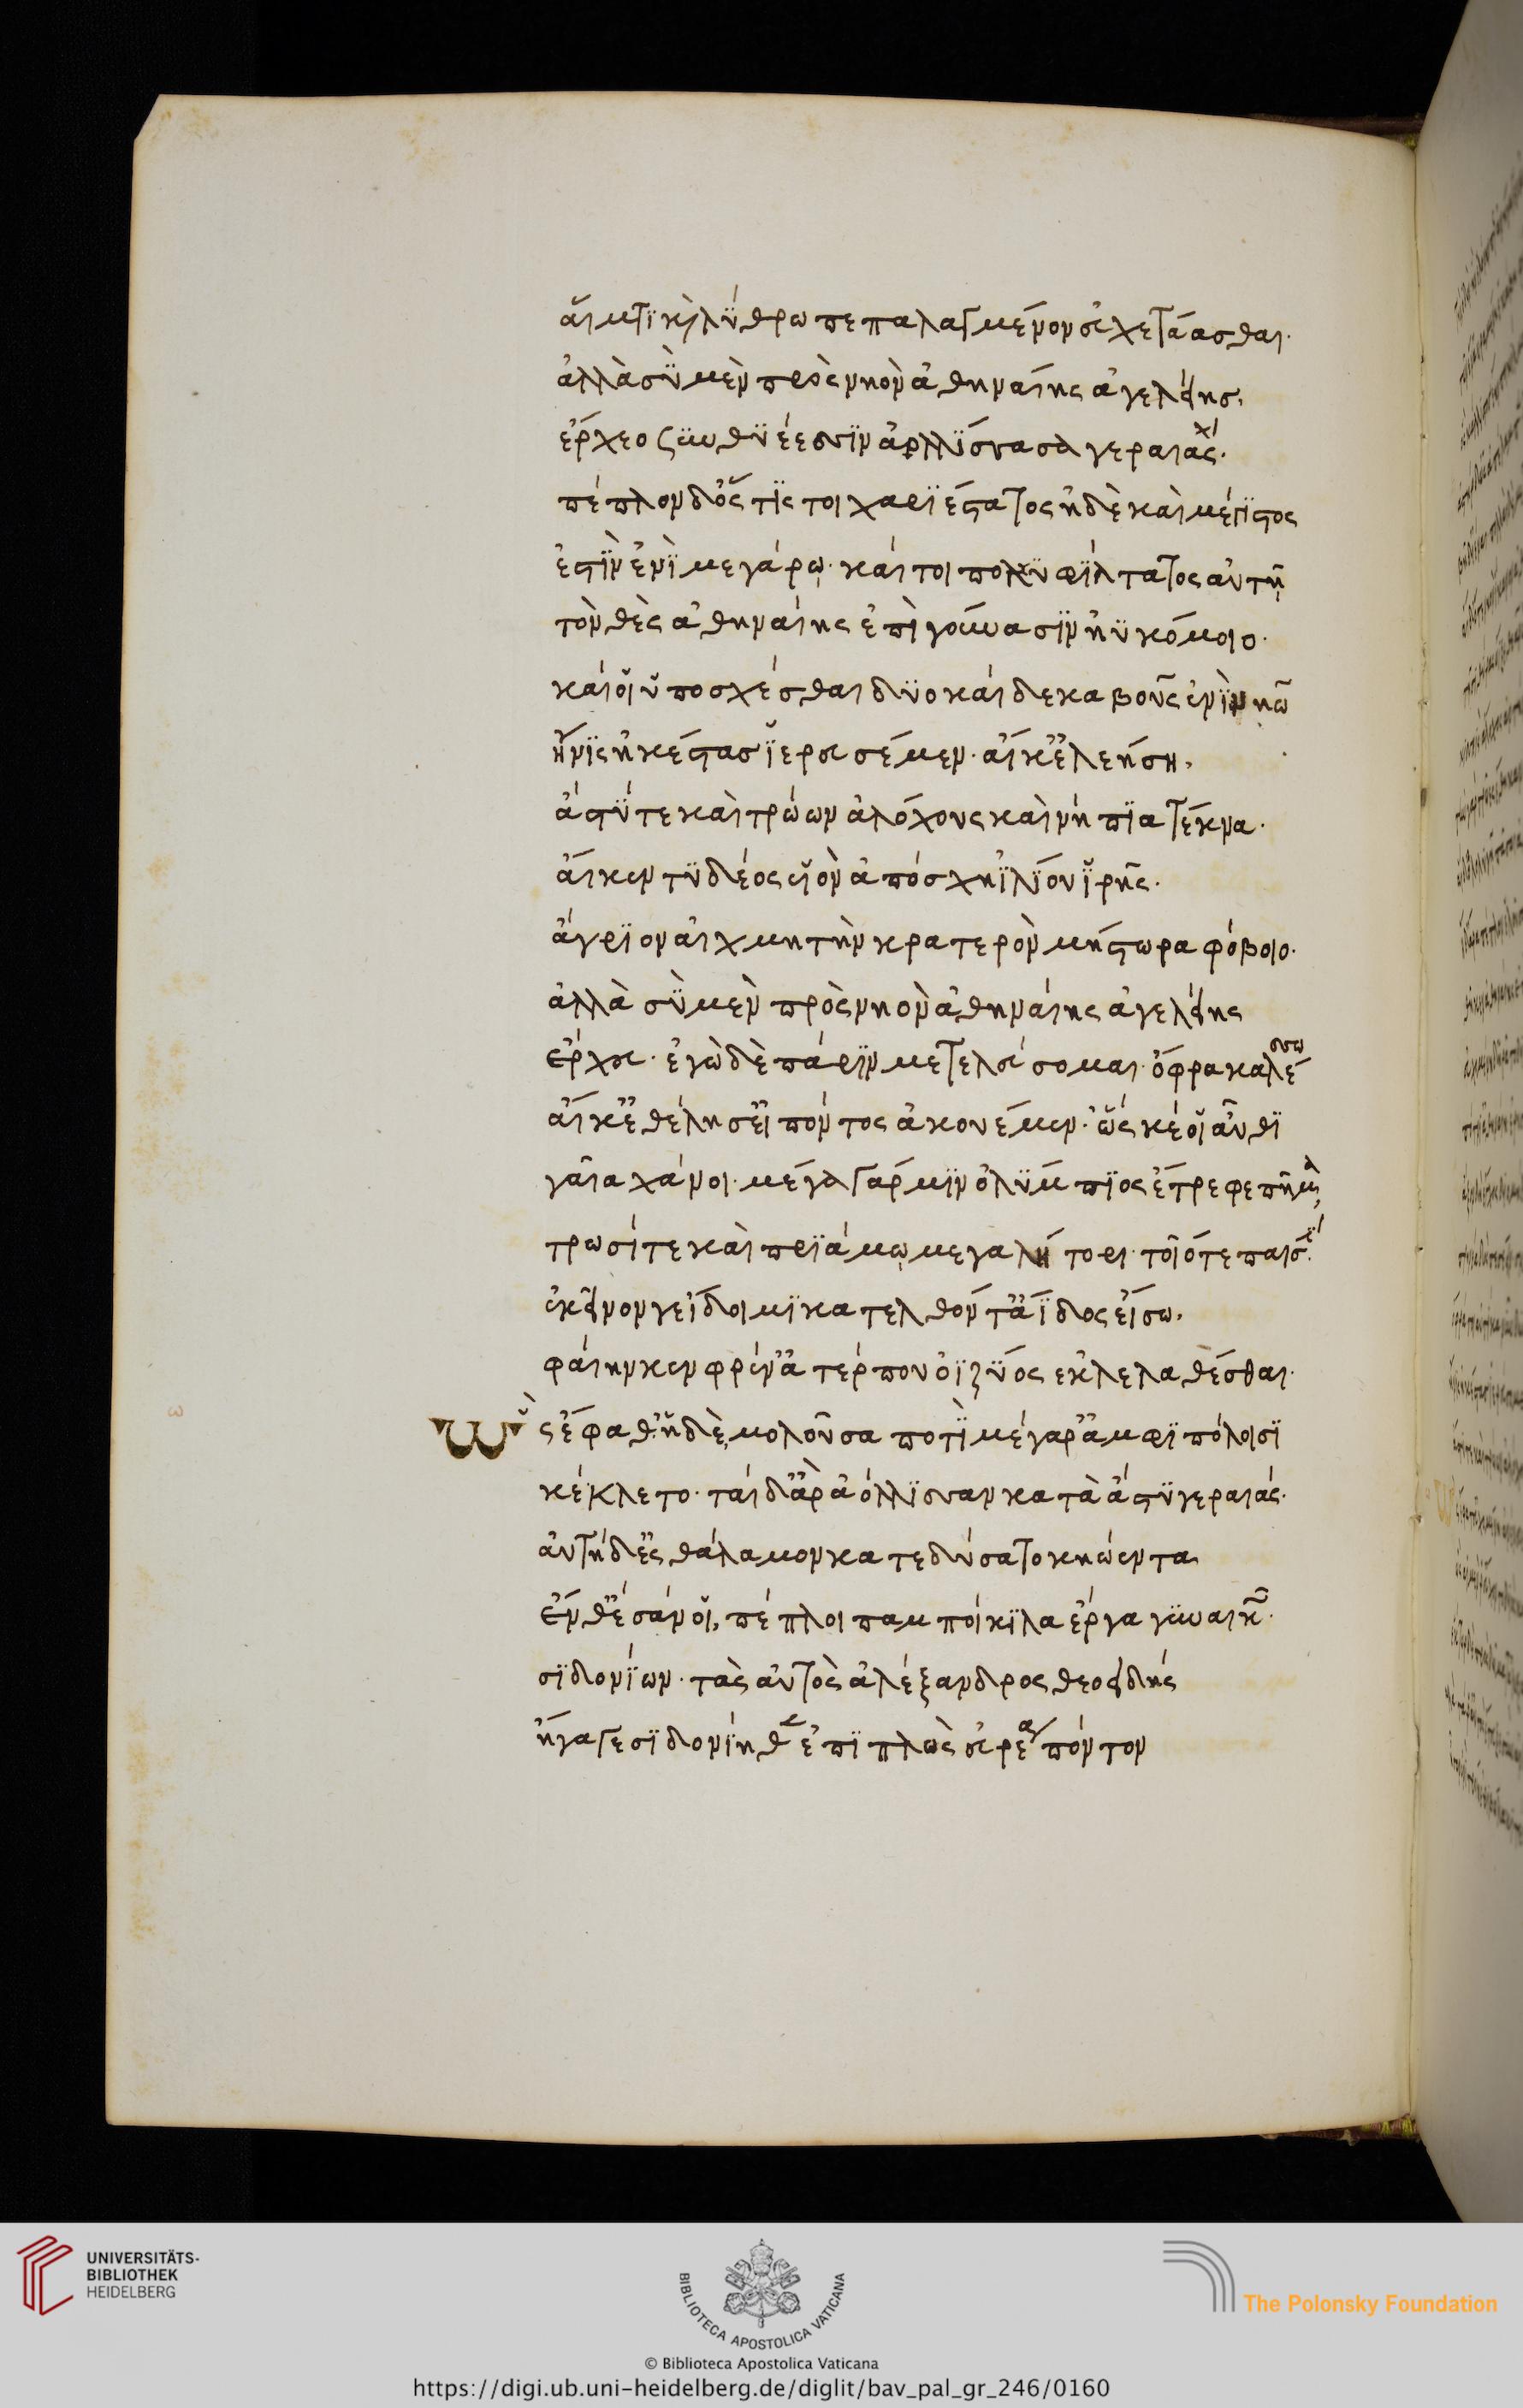 αἵματι κ̀ λύθρω πεπαλαγμένον εὐχετάασθαι.
ἀλλὰ σὺ μὲν πρὸς νηὸν ἀθηναίης ἀγελείης,
ἔρχεο ζὺν θυέεσσιν ἀολλίσσασα γεραιάς.
πέπλον δ' ὅς τίς τοι χαριέστατος ἠδὲ καὶ μέγιστος
ἐστὶν ἐνὶ μεγάρῳ. καί τοι πολὺ φίλτατος αὐτῆ
τὸν θὲς ἀθηναίης ἐπὶ γούνασιν ἠϋκόμοιο.
καί οἱ ὑποσχέσθαι δυοκαίδεκα βοῦς ἐνὶ νηῶ
ἤνις ἠκέστας ἱερευσέμεν. αἴ κ' ἐλεήση,
ἄστύ τε καὶ τρώων ἀλόχους καὶ νήπια τέκνα.
αἴ κεν τυδέος υἱὸν ἀπόσχη ἰλίου ἱρῆς.
ἄγριον αἰχμητὴν κρατερὸν μήστωρα φόβοιο.
ἀλλὰ σὺ μὲν πρὸς νηὸν ἀθηναίης ἀγελείης
ἔρχευ. ἐγὼ δὲ πάριν μετελεύσομαι. ὄφρα καλέσσω
αἴ κ' ἐθέλησ' εἰπόντος ἀκουέμεν. ὥς κέ οἱ αὖθι
γαῖα χάνοι. μέγα γάρ μιν ὀλύμπιος ἔτρεφε πῆμα
τρωσί τε καὶ πριάμω μεγαλήτορι. τοῖό τε παισί.
εἰ κεῖνον γε ἴδοιμι κατελθόντ' ἄϊδος εἴσω,
φαίην κεν φρέν' ἀτέρπου ὀϊζύος ἐκλελαθέσθαι.
ὣς ἔφαθ' ἡ δὲ μολοῦσα ποτὶ μέγαρ' ἀμφιπόλοισι
κέκλετο. ταὶ δ' ἄρ' ἀόλλισσαν κατὰ ἄστυ γεραιάς.
αὐτὴ δ' ἐς θάλαμον κατεδύσατο κηώεντα
ἔνθ' ἔσάν οἱ, πέπλοι παμποίκιλα ἔργα γυναικῶν.
σιδονίων. τὰς αὐτὸς ἀλέξανδρος θεοειδής
ἤγαγε σιδονίηθε ἐπιπλὼς εὐρέα πόντον
UNIVERSITÄTS-
BIBLIOTHEK
HEIDELBERG
BIBLIOTECA APOSTOLICA VATICANA
The Polonsky Foundation
© Biblioteca Apostolica Vaticana
https://digi.ub.uni-heidelberg.de/diglit/bav_pal_gr_246/0160